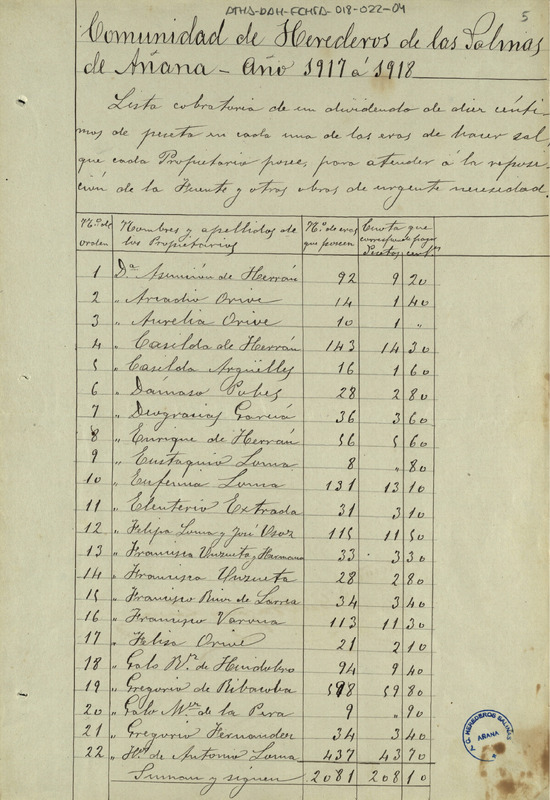 ATHA-DAH-FCHTA-018-022-04
5
Comunidad de Herederos de las Salinas
de Añana - Año 1917 á 1918
Lista cobratoria de un dividendo de diez cénti-
mos de peseta en cada una de las eras de hacer sal,
que cada Propietario posee, para atender á la reposi-
ción de la Fuente y otras obras de urgente necesidad.
Nº de orden Nombres y apellidos de los Propietarios Nº de eras que poseen Cuota que corresponde pagar Pesetas cent.s
1 Dª Asunción de Herrán 92 9 20
2 " Arcadio Orive 14 1 40
3 " Aurelia Orive 10 1 "
4 " Casilda de Herrán 143 14 30
5 " Casilda Argüelles 16 1 60
6 " Dámaso Pobes 28 2 80
7 " Deogracias García 36 3 60
8 " Enrique de Herrán 56 5 60
9 " Eustaquio Loma 8 " 80
10 " Eufemia Loma 131 13 10
11 " Eleuterio Extrada 31 3 10
12 " Felipa Loma y José Osoz 115 11 50
13 " Francisca Unzueta y Hermana 33 3 30
14 " Francisca Unzueta 28 2 80
15 " Francisco Ruiz de Larrea 34 3 40
16 " Francisco Varona 113 11 30
17 " Felisa Orive 21 2 10
18 " Galo de Huidobro 94 9 40
19 " Gregorio de Ribacoba 598 59 80
20 " Galo de la Pera 9 " 90
21 " Gregorio Fernandez 34 3 40
22 " de Antonio Loma 437 43 70
Suman y siguen 2081 208 10
HEREDEROS SALINAS
AÑANA